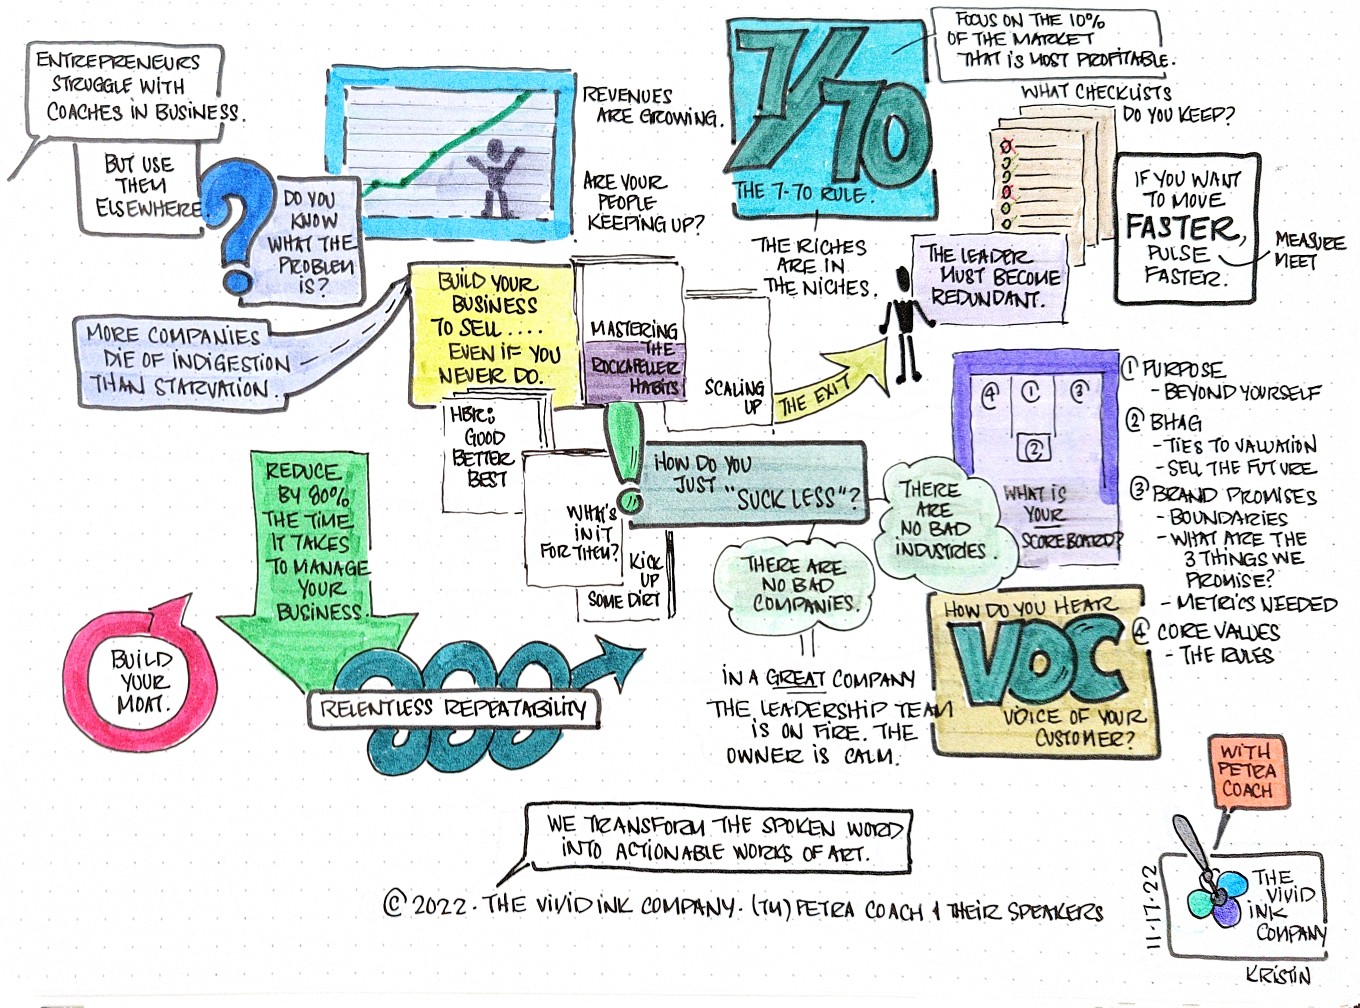 ENTREPRENEURS
STRUGGLE WITH
COACHES IN BUSINESS.
BUT USE
THEM
ELSEWHERE.
DO YOU
KNOW
WHAT THE
PROBLEM
IS?
REVENUES
ARE GROWING.
ARE YOUR
PEOPLE
KEEPING UP?
7/70
THE 7-70 RULE.
FOCUS ON THE 10%
OF THE MARKET
THAT IS MOST PROFITABLE.
THE RICHES
ARE IN
THE NICHES.
WHAT CHECKLISTS
DO YOU KEEP?
IF YOU WANT
TO MOVE
FASTER,
PULSE
FASTER.
MEASURE
MEET
THE LEADER
MUST BECOME
REDUNDANT.
MORE COMPANIES
DIE OF INDIGESTION
THAN STARVATION.
BUILD YOUR
BUSINESS
TO SELL....
EVEN IF YOU
NEVER DO.
MASTERING
THE
ROCKAFELLER
HABITS
SCALING
UP
THE EXIT
HBR:
GOOD
BETTER
BEST
WHAT'S
IN IT
FOR THEM?
KICK
UP
SOME DIRT
HOW DO YOU
JUST "SUCK LESS"?
THERE
ARE
NO BAD
INDUSTRIES.
THERE ARE
NO BAD
COMPANIES.
IN A GREAT COMPANY
THE LEADERSHIP TEAM
IS ON FIRE. THE
OWNER IS CALM.
4 1 3
2
WHAT IS
YOUR
SCOREBOARD?
1 PURPOSE
- BEYOND YOURSELF
2 BHAG
- TIES TO VALUATION
- SELL THE FUTURE
3 BRAND PROMISES
- BOUNDARIES
- WHAT ARE THE
3 THINGS WE
PROMISE?
- METRICS NEEDED
4 CORE VALUES
- THE RULES
HOW DO YOU HEAR
VOC
VOICE OF YOUR
CUSTOMER?
REDUCE
BY 80%
THE TIME
IT TAKES
TO MANAGE
YOUR
BUSINESS.
BUILD
YOUR
MOAT.
RELENTLESS REPEATABILITY
WE TRANSFORM THE SPOKEN WORD
INTO ACTIONABLE WORKS OF ART.
© 2022 · THE VIVID INK COMPANY · (TM) PETRA COACH + THEIR SPEAKERS
WITH
PETRA
COACH
11·17·22
THE
VIVID
INK
COMPANY
KRISTIN